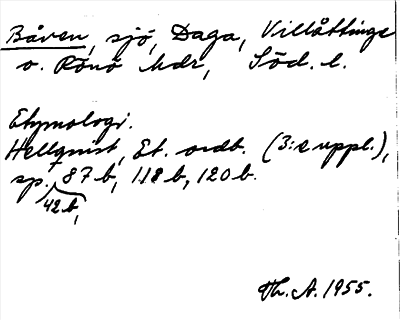 Båven, sjö, Daga, Villåttinge
o. Rönö hdr, Söd. l.
Etymologi.
Hellquist, Et. ordb. (3:e uppl.),
sp. 87 b, 118 b, 120 b.
42 b,
Th. A. 1955.